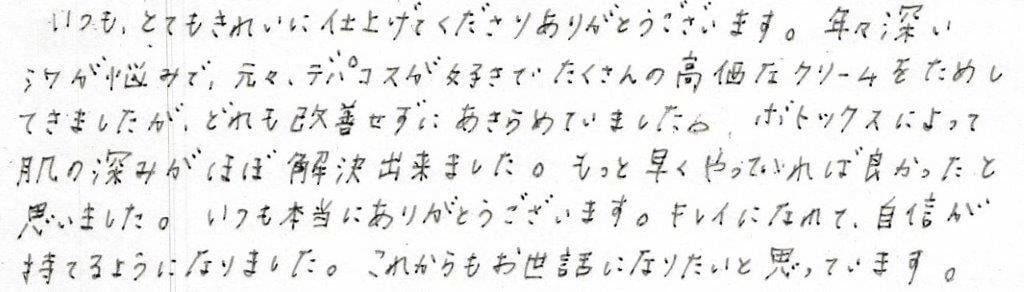 いつも、とてもきれいに仕上げてくださりありがとうございます。年々深い
シワが悩みで、元々、デパコスが好きでたくさんの高価なクリームをためし
てきましたが、どれも改善せずにあきらめていましたが、ボトックスによって
肌の深みがほぼ解決出来ました。もっと早くやっていれば良かったと
思いました。いつも本当にありがとうございます。キレイになれて、自信が
持てるようになりました。これからもお世話になりたいと思っています。